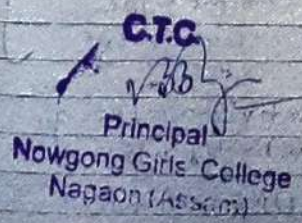 C.T.C.
Principal
Nowgong Girls' College
Nagaon (Assam)